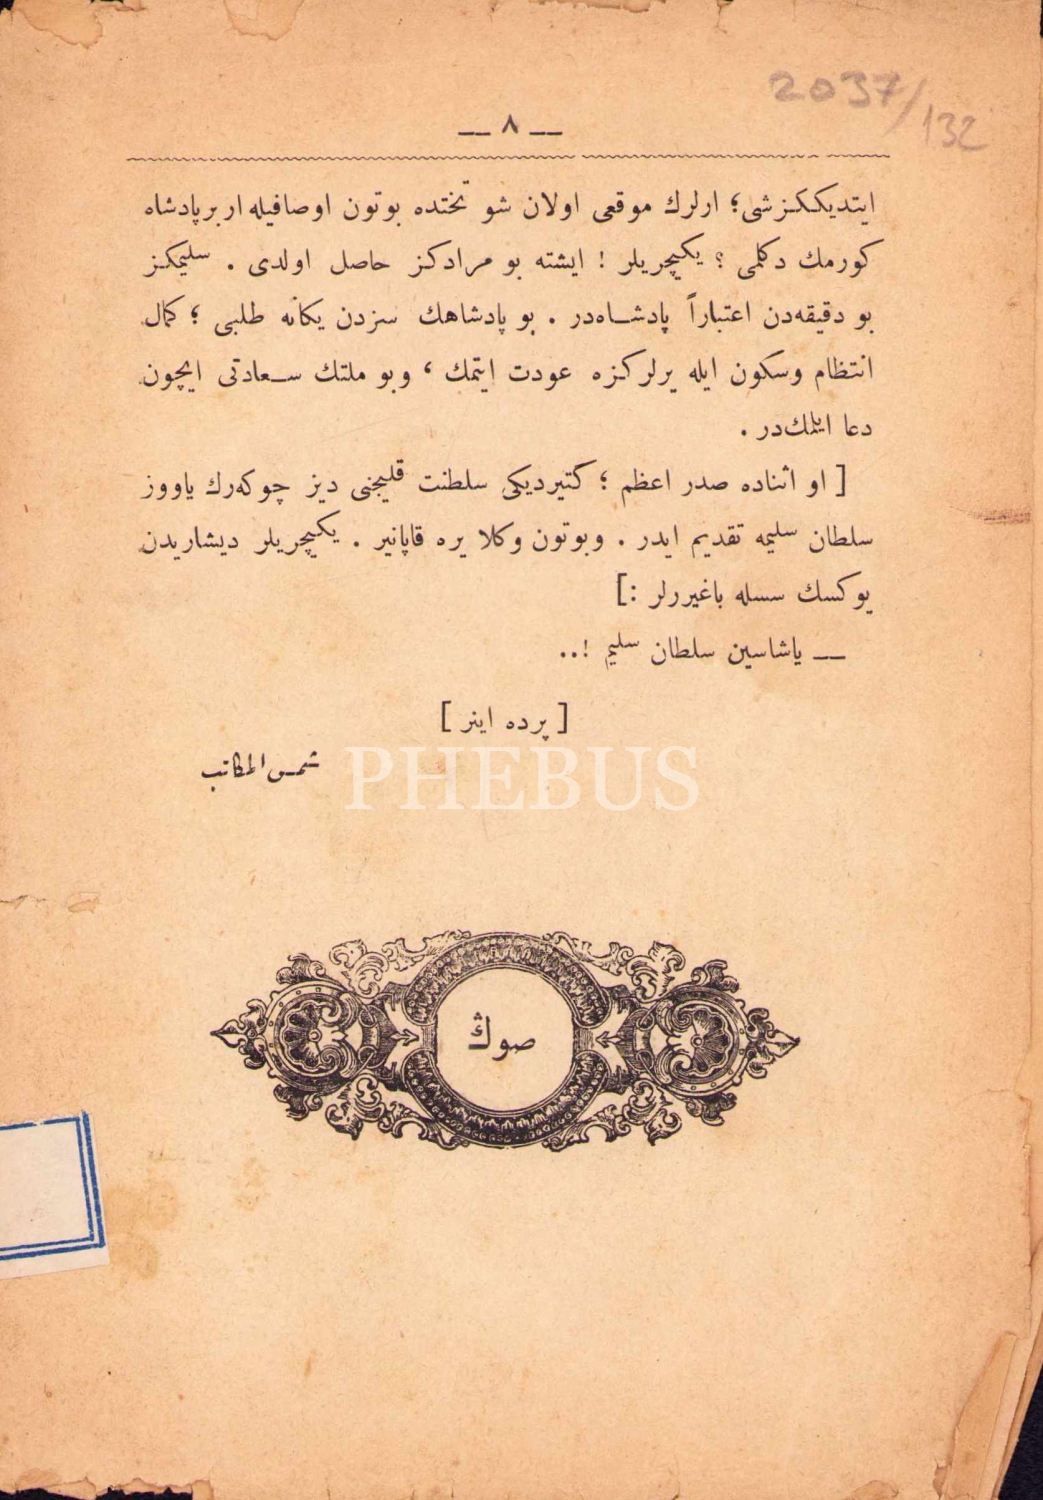 2037/132
— ٨ —
ایتدیککز شی؛ ارلرك موقعی اولان شو تختده بوتون اوصافیله ار بر پادشاه
كورمك دكلمی ؟ یكیچریلر ! ایشته بو مرادكز حاصل اولدی . سلیمكز
بو دقیقه‌دن اعتباراً پادشاه‌در . بو پادشاهك سزدن یكانه طلبی ؛ كمال
انتظام وسكون ایله یرلركزه عودت ایتمك ، وبو ملتك سعادتی ایچون
دعا ایلمك‌در .
[ او اثناده صدر اعظم ؛ كتیردیكی سلطنت قلیجنی دیز چوكه‌رك یاووز
سلطان سلیمه تقدیم ایدر . وبوتون وكلا یره قاپانیر . یكیچریلر دیشاریدن
یوكسك سسله باغیررلر :]
— یاشاسین سلطان سلیم !..
[ پرده اینر ]
شمس المكاتب
PHEBUS
صوڭ